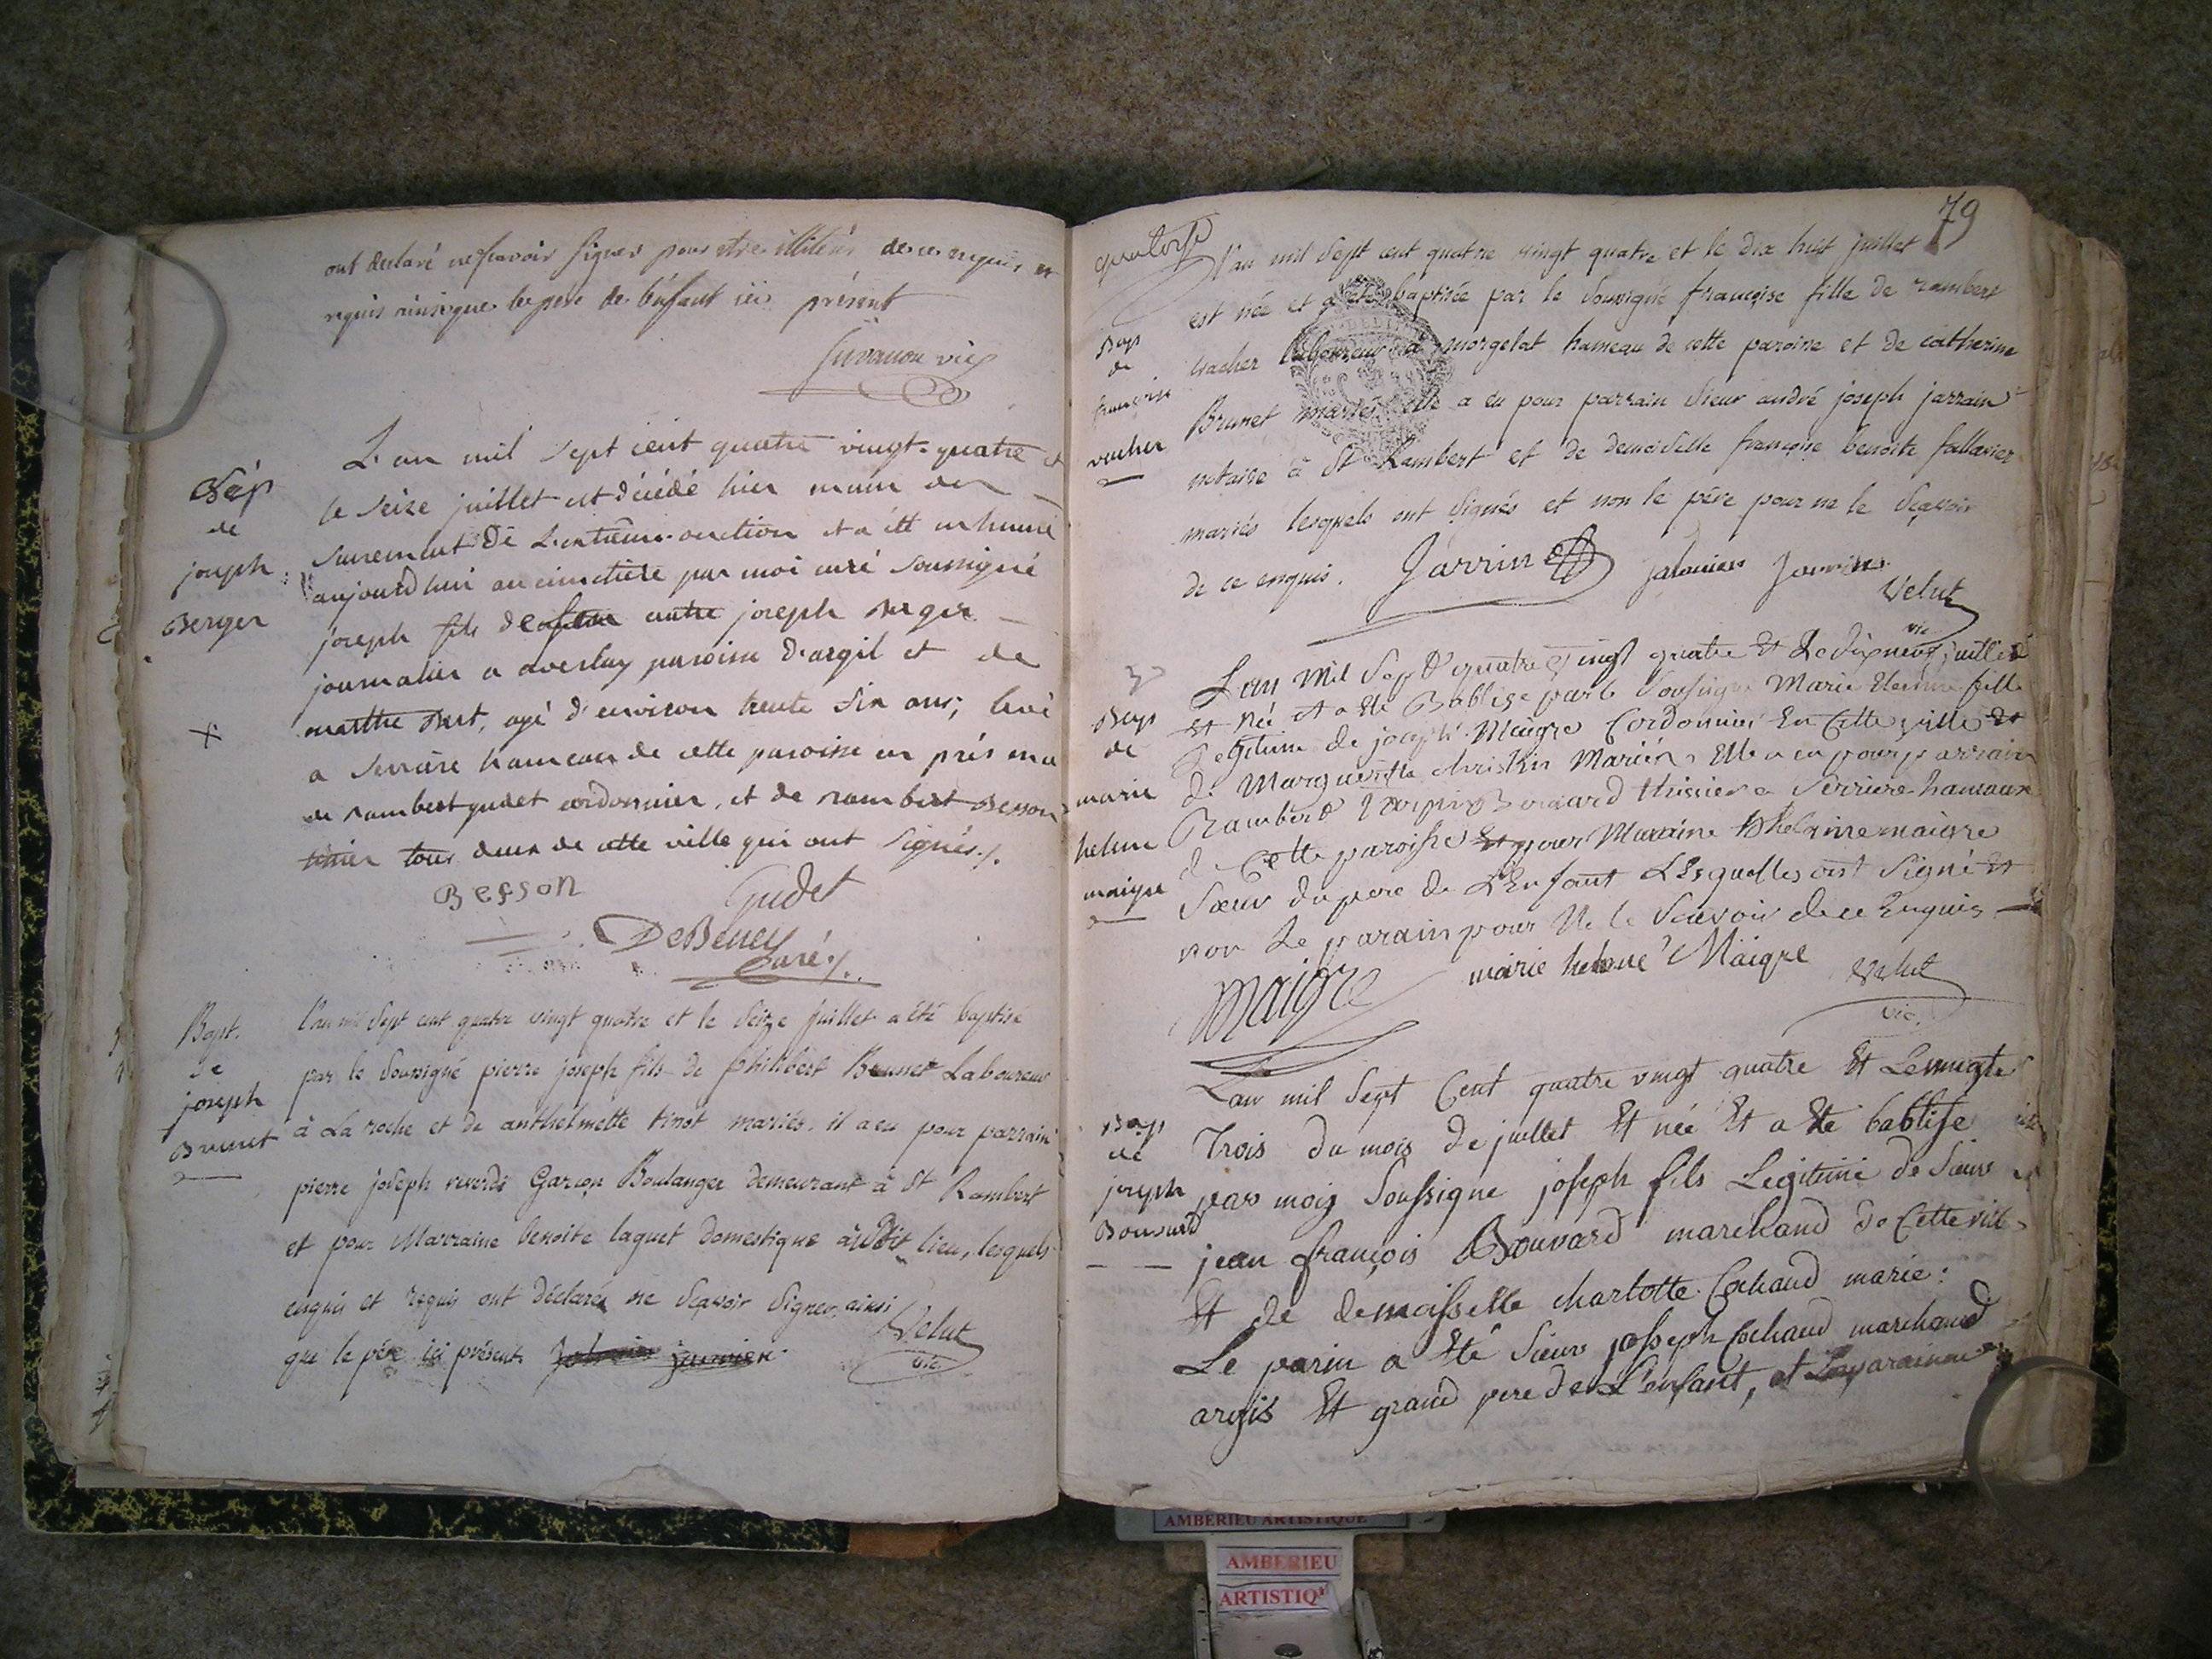 ont declaré ne scavoir signer pour être illitérés de ce enquis et
requis ainsi que le pere de l'enfant ici présent
vic
Sép
de
joseph
Berger
L'an mil sept cent quatre vingt-quatre et
le seize juillet est décédé hier muni des
sacrement de L'extreme-onction et a été inhumé
aujourdhui au cimetiere par moi curé soussigné
joseph fils de autre joseph berger
journalier a paroisse d'argil et de
marthe agé d'environ trente six ans,
a serriere hameau de cette paroisse en présence
de rambert gudet cordonnier, et de rambert Besson
tous deux de cette ville qui ont signés ./.
Besson Gudet
DeBeney
Curé ./.
Bapt.
de
joseph
Brunet
L'an mil sept cent quatre vingt quatre et le seize juillet a été baptisé
par le soussigné pierre joseph fils de philibert Brunet Laboureur
à La roche et de anthelmette tinot mariés. il a eu pour parrain
pierre joseph reverdi Garçon Boulanger demeurant à St Rambert
et pour Marraine benoite laguet domestique audit lieu, lesquels
enquis et requis ont déclarés ne sçavoir signer, ainsi
que le père ici présent. Velut
vic
79
quatorse
Bap
de
françoise
vacher
L'an mil sept cent quatre vingt quatre et le dix huit juillet
est née et a été baptisée par le soussigné françoise fille de rambert
vacher laboureur à morgelat hameau de cette paroisse et de catherine
Brunet mariés elle a eu pour parrain sieur andré joseph jarrain
notaire à St Rambert et de demoiselle françoise benoite fallavier
mariés lesquels ont signés et non le père pour ne le sçavoir
de ce enquis. Jarrin
Velut
vic
Bap
de
marie
helene
maigre
L'an mil sept quatre vingt quatre Et Le dixneuf juillet
Et Née et a Eté Babtise par le soussigne Marie fille
Legitime de joseph Maigre Cordonnier En Cette ville Et
de Marguerite christin Mariés Elle a eu pour parrain
Rambert Bouvard thissier a Serriere hameaux
de Cette paroisse Et pour Marraine maigre
Sœur du pere de L'Enfant Lesquelles ont signé Et
non Le parain pour Ne le Scavoir de ce Enquis
maigre marie helene Maigre Velut
vic.
Bap
de
joseph
Bouvard
L'an mil sept Cent quatre vingt quatre Et Le vingte
Trois du mois de juillet Et née Et a Eté babtise
par moy soussigne joseph fils Legitime de sieur
jean françois Bouvard marchand de Cette ville
Et de demoisselle charlotte Cochaud marie:
Le parin a Eté sieur josseph Cochaud marchand
argis Et grand pere de L'enfant, et
AMBERIEU ARTISTIQUE
AMBERIEU
ARTISTIQ